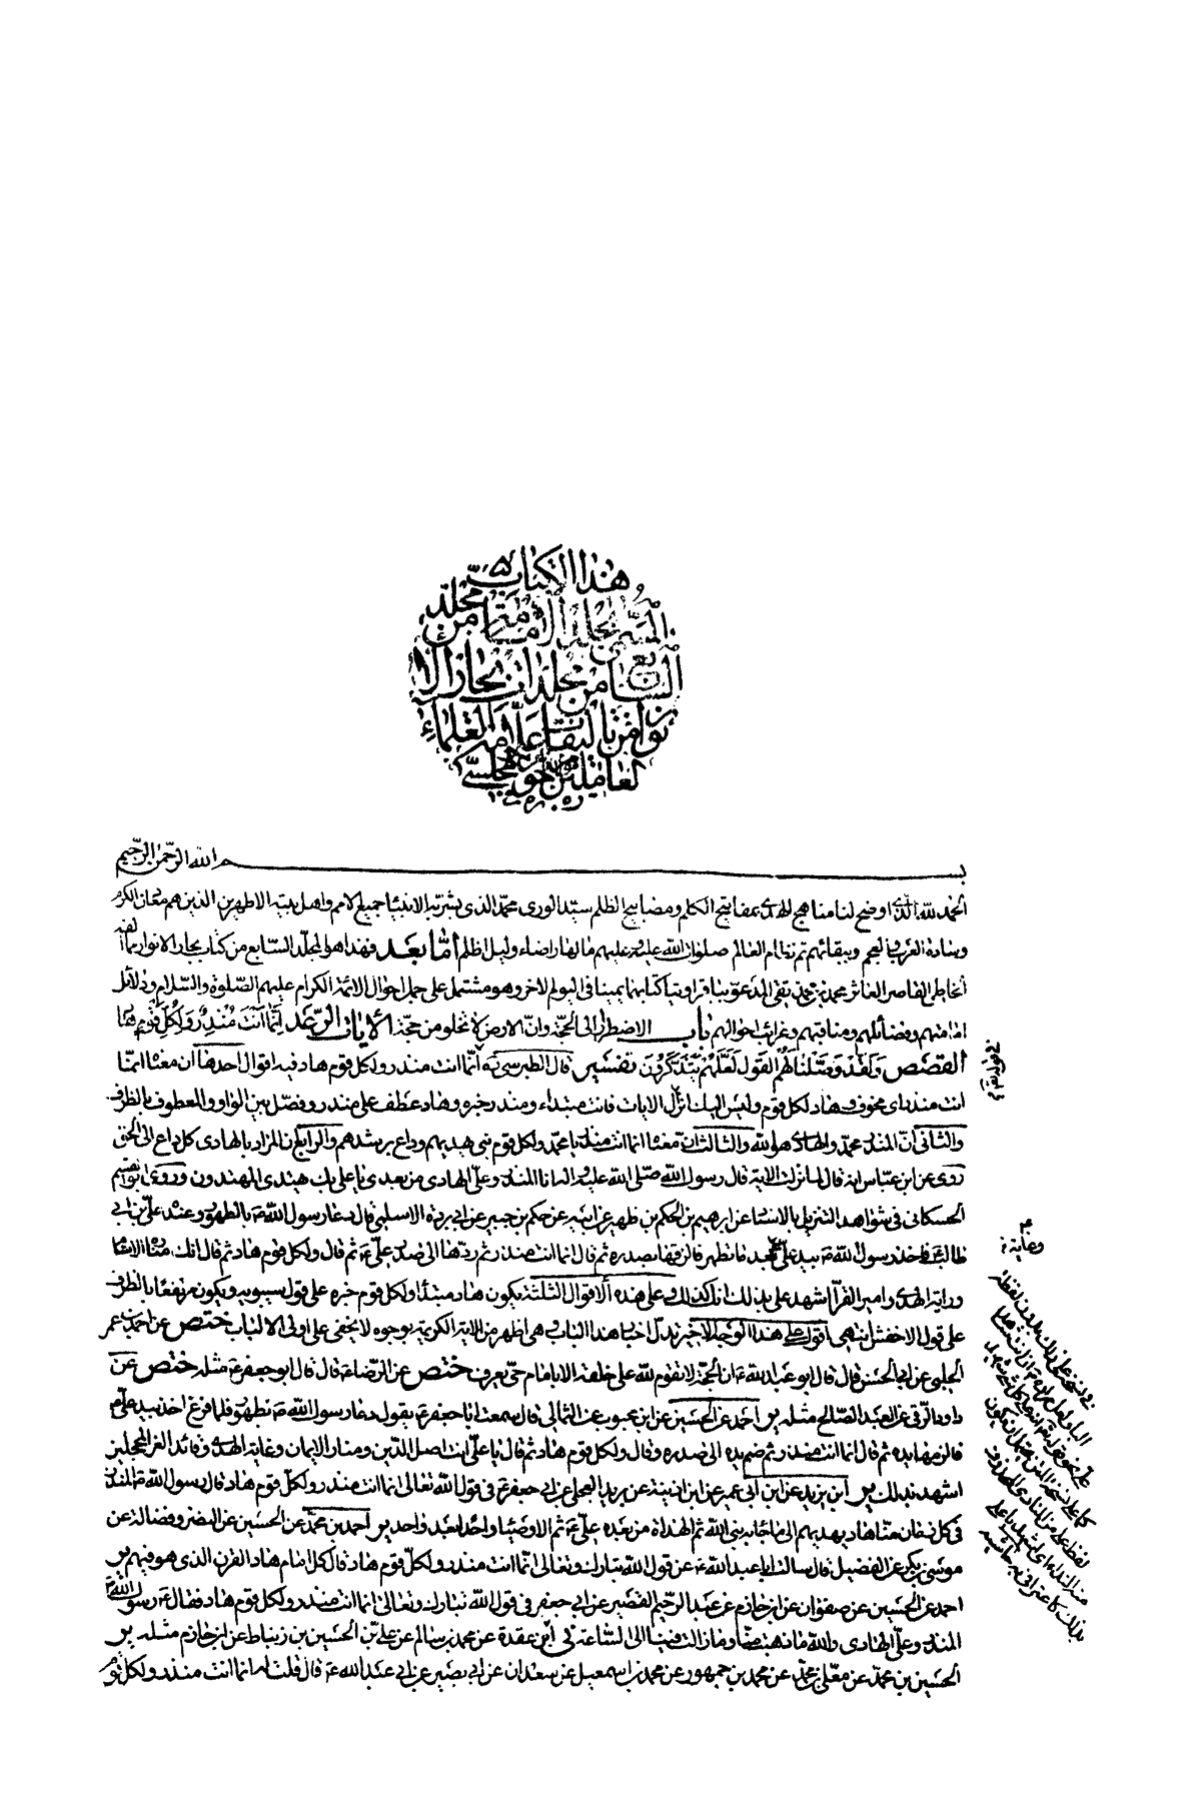 هذا الكتاب
المسمى بجلد الامامة من مجلد
السابع من مجلدات بحار الا
نوار من تاليفات علامة العلماء
مجلسي
بسم الله الرحمن الرحيم
الحمد لله الذي اوضح لنا مناهج الهدى بمفاتيح الكلم ومصابيح الظلم سيد الورى محمد الذي بشر به الانبياء جميع الامم واهل بيته الاطهرين الذين هم معادن الكرم
وسادة العرب والعجم وببقائهم تم نظام العالم صلوات الله عليه وعليهم ما نهار اضاء وليل اظلم اما بعد فهذا هو المجلد السابع من كتاب بحار الانوار مما الفه
الخاطئ القاصر العاثر محمد بن محمد تقي المدعو بباقر اوتيا كتابهما يمينا في اليوم الاخر وهو مشتمل على جمل احوال الائمة الكرام عليهم الصلوة والسلام ودلائل
امامتهم وفضائلهم ومناقبهم وغرائب احوالهم باب الاضطرار الى الحجة وان الارض لا تخلو من حجة الايات الرعد انما انت منذر ولكل قوم هاد
القصص ولقد وصلنا لهم القول لعلهم يتذكرون تفسير قال الطبرسي ره انما انت منذر ولكل قوم هاد فيه اقوال احدها ان معناه انما
انت منذر اي مخوف وهاد لكل قوم وليس اليك انزال الايات فانت مبتداء ومنذر خبره وهاد عطف على منذر وفصل بين الواو والمعطوف بالظرف
والثاني ان المنذر محمد والهادي هو الله والثالث ان معناه انما انت منذر يا محمد ولكل قوم نبي يهديهم وداع يرشدهم والرابع ان المراد بالهادي كل داع الى الحق
روى عن ابن عباس انه قال لما نزلت الاية قال رسول الله صلى الله عليه واله انا المنذر وعلي الهادي من بعدي يا علي بك يهتدي المهتدون وروى ابو القسم
الحسكاني في شواهد التنزيل بالاسناد عن ابرهيم بن الحكم بن ظهير عن ابيه عن حكم بن جبير عن ابي برده الاسلمي قال دعا رسول الله ص بالطهور وعنده علي بن ابي
طالب فاخذ رسول الله ص بيد علي بعد ما تطهر فالزقها بصدره ثم قال انما انت منذر ثم ردها الى صدر علي ع ثم قال ولكل قوم هاد ثم قال انك منارة الانام
وراية الهدى وامير القرآ اشهد على ذلك انك كذلك وعلى هذه الاقوال الثلثة يكون هاد مبتدأ ولكل قوم خبره على قول سيبويه ويكون مرتفعا بالظرف
على قول الاخفش انتهى اقول على هذا الوجه الاخير تدل اخبار هذا الباب وهي اظهر من الاية الكريمة بوجوه لا يخفى على اولى الالباب ختص عن احمد بن عمر
الحلبي عن ابي الحسن قال قال ابو عبد الله ع ان الحجة لا تقوم لله على خلقه الا بامام حتى يعرف ختص عن الرضا ع قال قال ابو جعفر ع مثله ختص عن
داود الرقي عن العبد الصالح مثله ير احمد عن الحسين عن ابن محبوب عن الثمالي قال سمعت ابا جعفر ع يقول دعا رسول الله ص بطهور فلما فرغ اخذ بيد علي ع
فالزمها بيده ثم قال انما انت منذر ثم ضم يده الى صدره وقال ولكل قوم هاد ثم قال يا علي انت اصل الدين ومنار الايمان وغاية الهدى وقائد الغر المحجلين
اشهد بذلك ير ابن يزيد عن ابن ابي عمير عن ابن اذينة عن بريد العجلي عن ابي جعفر ع في قول الله تعالى انما انت منذر ولكل قوم هاد قال رسول الله ص المنذر
في كل زمان منا هاد يهديهم الى ما جاء به نبي الله ثم الهداة من بعده علي ع ثم الاوصياء واحدا بعد واحد ير احمد بن محمد عن الحسين عن النضر وفضالة عن
موسى بن بكر عن الفضيل قال سالت ابا عبد الله ع عن قول الله تبارك وتعالى انما انت منذر ولكل قوم هاد قال كل امام هاد القرن الذي هو فيهم ير
احمد عن الحسين عن صفوان عن ابن حازم عن عبد الرحيم القصير عن ابي جعفر في قول الله تبارك وتعالى انما انت منذر ولكل قوم هاد فقال ع رسول الله ص
المنذر وعلي الهادي والله ما ذهبت منا وما زالت فينا الى الساعة ني ابن عقدة عن محمد بن سالم عن علي بن الحسين بن زنباط عن ابن حازم مثله ير
الحسين بن محمد عن معلى بن محمد عن محمد بن جمهور عن محمد بن اسمعيل عن سعدان عن ابي بصير عن ابي عبد الله ع قال قلت له انما انت منذر ولكل قوم